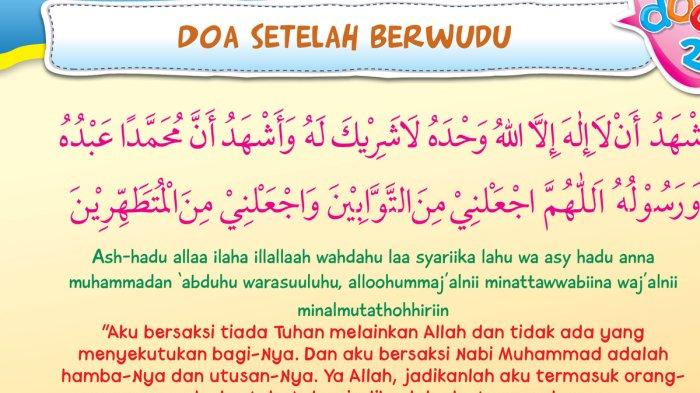 DOA SETELAH BERWUDU
شْهَدُ أَنْ لَا إِلٰهَ إِلَّا اللّٰهُ وَحْدَهُ لَا شَرِيْكَ لَهُ وَأَشْهَدُ أَنَّ مُحَمَّدًا عَبْدُهُ
وَرَسُوْلُهُ اَللّٰهُمَّ اجْعَلْنِيْ مِنَ التَّوَّابِيْنَ وَاجْعَلْنِيْ مِنَ الْمُتَطَهِّرِيْنَ
Ash-hadu allaa ilaha illallaah wahdahu laa syariika lahu wa asy hadu anna
muhammadan ‘abduhu warasuuluhu, alloohummaj’alnii minattawwabiina waj’alnii
minalmutathohhiriin
“Aku bersaksi tiada Tuhan melainkan Allah dan tidak ada yang
menyekutukan bagi-Nya. Dan aku bersaksi Nabi Muhammad adalah
hamba-Nya dan utusan-Nya. Ya Allah, jadikanlah aku termasuk orang-